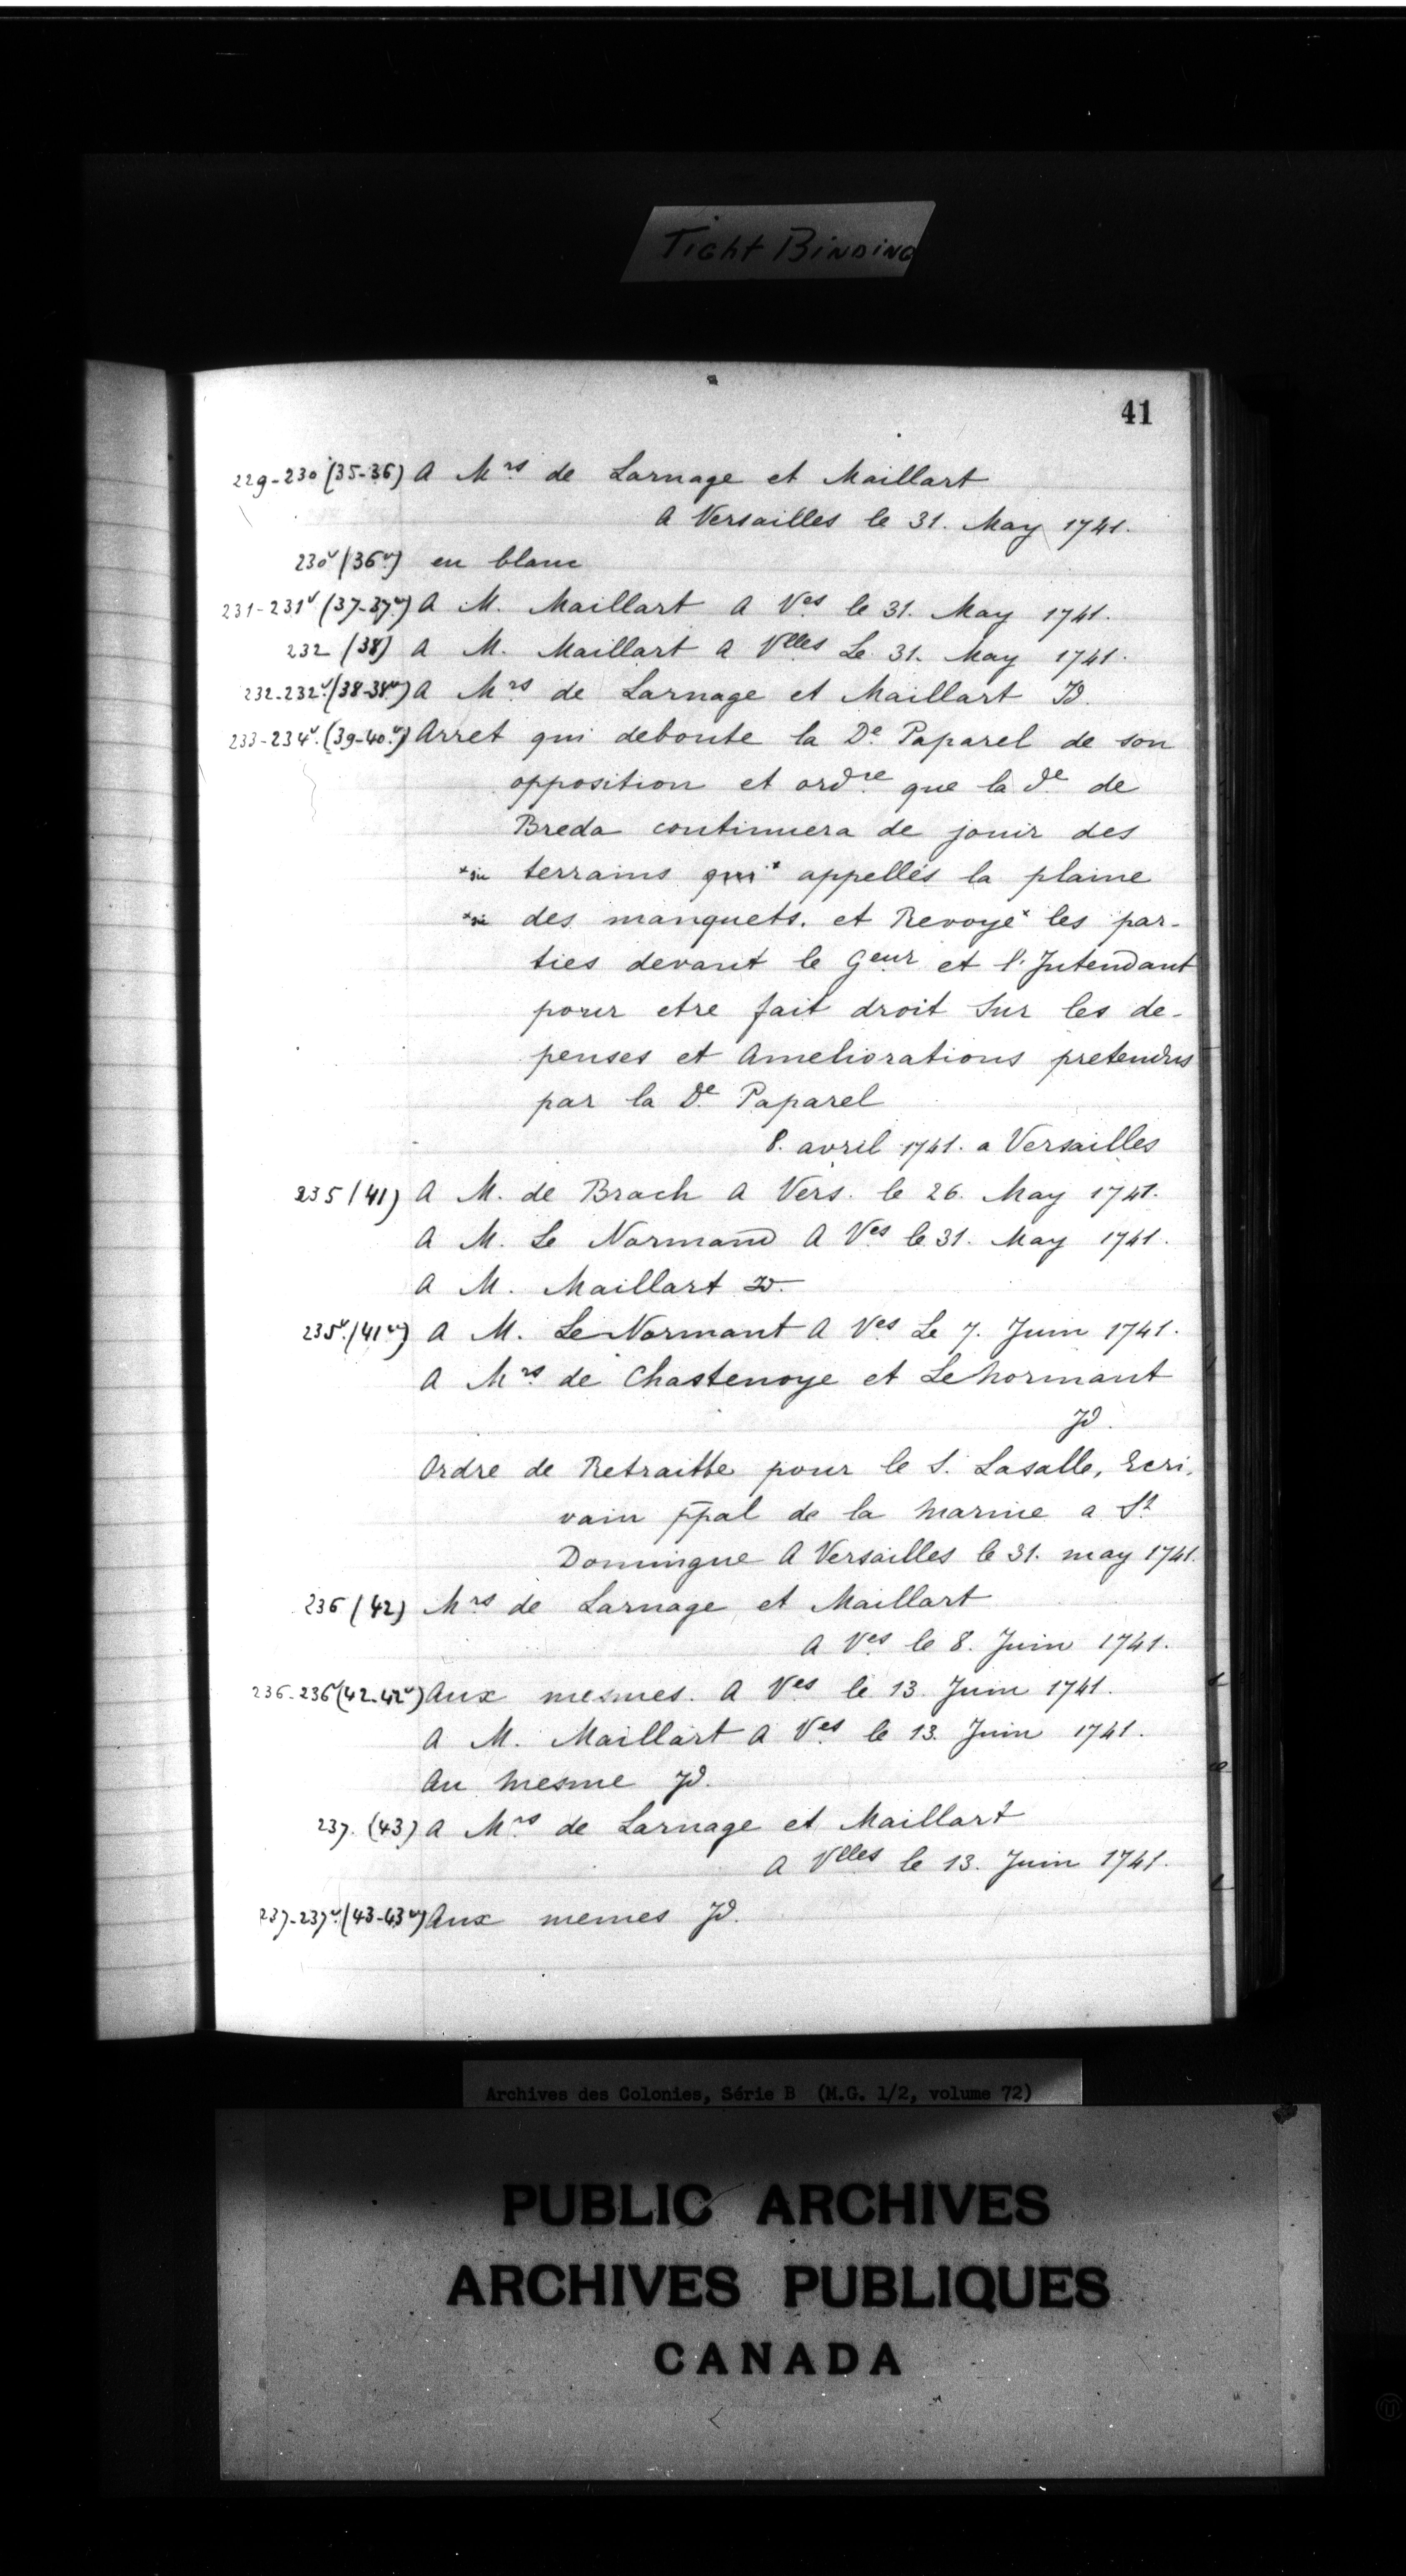 Tight Binding
41
229-230 (35-36) A Mrs de Larnage et Maillart
A Versailles le 31. May 1741.
230v (36v) en blanc
231-231v (37-37v) A M. Maillart A Ves le 31. May 1741.
232 (38) A M. Maillart A Vlles Le 31. May 1741.
232-232v. (38-38v) A Mrs de Larnage et Maillart Id.
233-234v. (39-40v) Arret qui deboute la De Paparel de son
opposition et ordre que la de de
Breda continuera de jouir des
*sic terrains qui* appellés la plaine
*sic des manquets. et Revoyé* les par-
ties devant le Geur et l'Intendant
pour etre fait droit Sur les de-
penses et Ameliorations pretendus
par la De Paparel
8. avril 1741. a Versailles
235 (41) A M. de Brach A Vers. le 26. May 1741.
A M. Le Normand A Ves le 31. May 1741.
A M. Maillart Id.
235v. (41v) A M. Le Normant A Ves Le 7. Juin 1741.
A Mrs de Chastenoye et Lenormant
Id.
Ordre de Retraitte pour le S. Lasalle, Ecri-
vain ppal de la marine a St
Domingue A Versailles le 31. may 1741.
236 (42) Mrs de Larnage et Maillart
A Ves le 8. Juin 1741.
236-236v (42-42v) Aux mesmes. A Ves le 13. Juin 1741.
A M. Maillart A Ves le 13. Juin 1741.
Au mesme Id.
237. (43) A Mrs de Larnage et Maillart
A Vlles le 13. Juin 1741.
237-237v. (43-43v) Aux memes Id.
Archives des Colonies, Série B (M.G. 1/2, volume 72)
PUBLIC ARCHIVES
ARCHIVES PUBLIQUES
CANADA